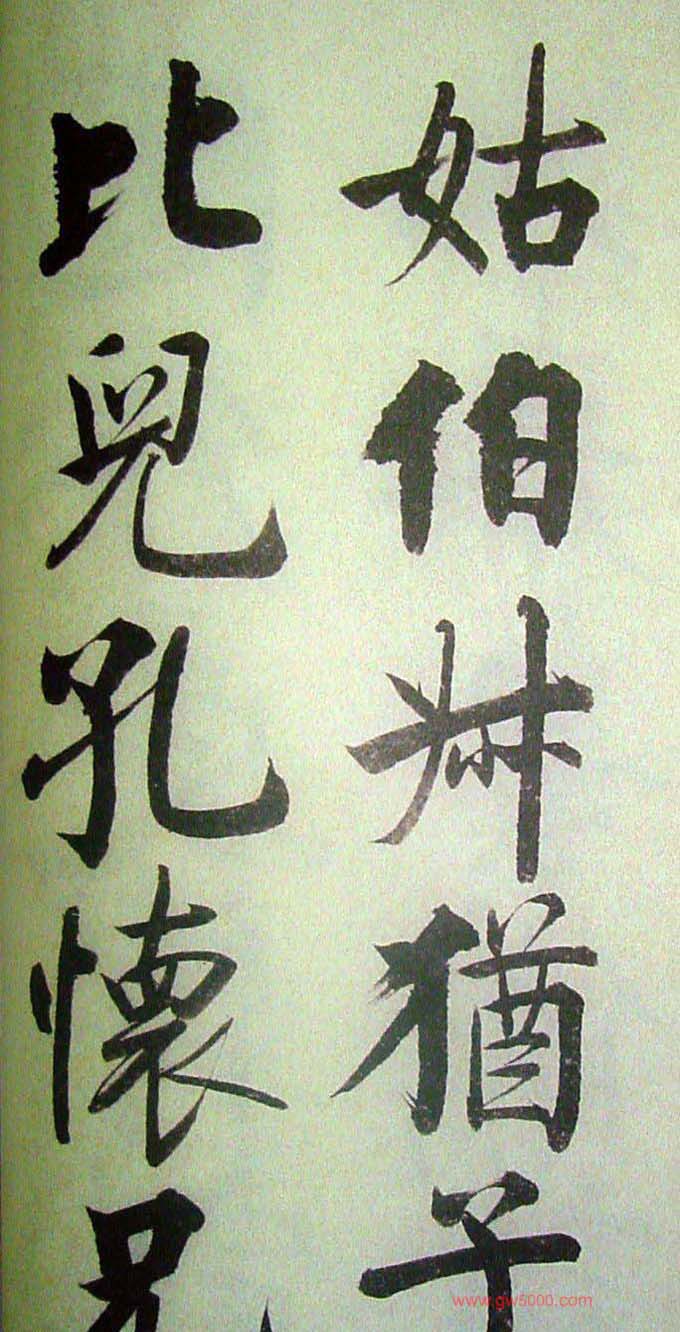 姑伯叔猶子
比兒孔懷兄
www.gw5000.com